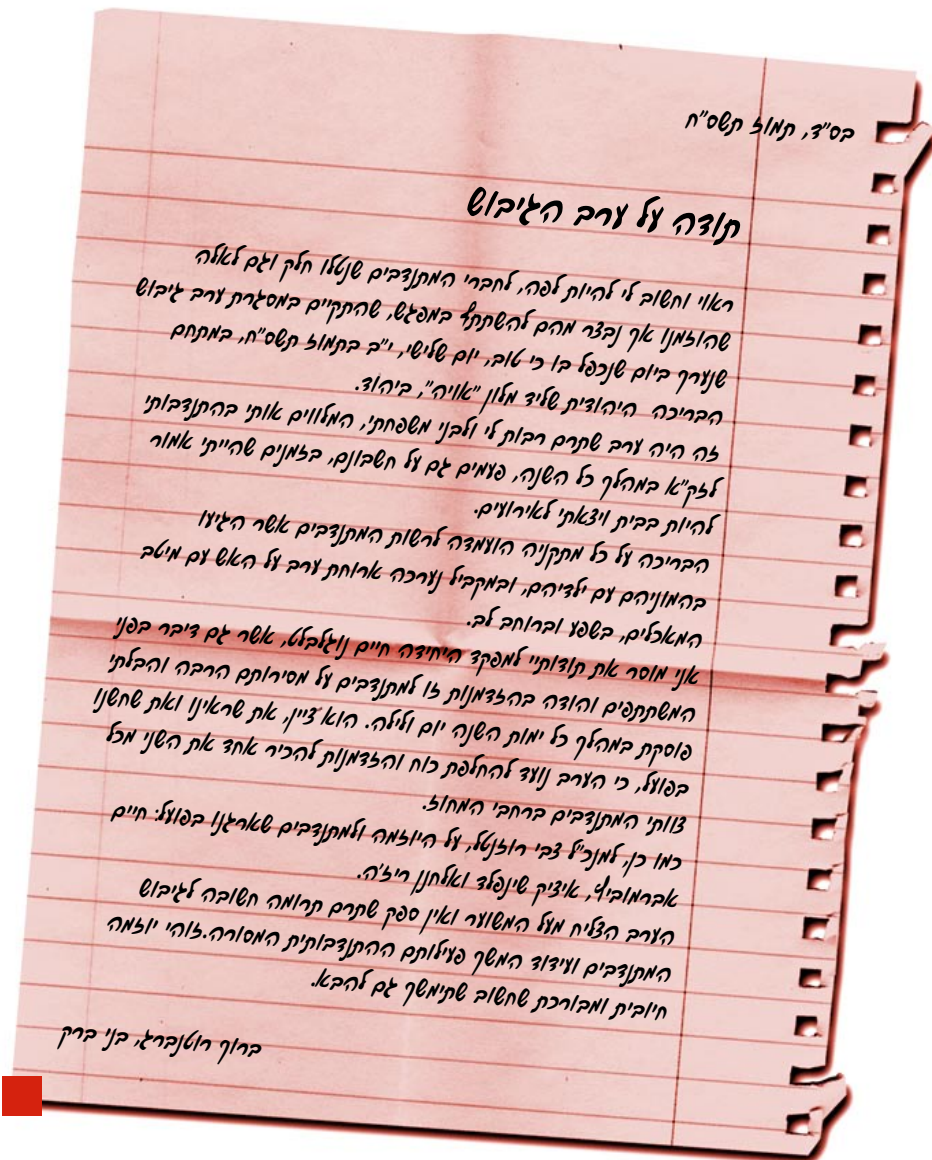 בס"ד, תמוז תשס"ח
תודה על ערב הגיבוש
ראוי וחשוב לי להיות לפה, לחברי המתנדבים שנטלו חלק וגם לאלה
שהוזמנו אך נבצר מהם להשתתף במפגש, שהתקיים במסגרת ערב גיבוש
שנערך ביום שנכפל בו כי טוב, יום שלישי, י"ב בתמוז תשס"ח, במתחם
הבריכה היהודית שליד מלון "אויה", ביהוד.
זה היה ערב שתרם רבות לי ולבני משפחתי, המלווים אותי בהתנדבותי
לזק"א במהלך כל השנה, פעמים גם על חשבונם, בזמנים שהייתי אמור
להיות בבית ויצאתי לאירועים.
הבריכה על כל מתקניה הועמדה לרשות המתנדבים אשר הגיעו
בהמוניהם עם ילדיהם, ובמקביל נערכה ארוחת ערב על האש עם מיטב
המאכלים, בשפע וברוחב לב.
אני מוסר את תודותיי למפקד היחידה חיים נוגלבלט, אשר גם דיבר בפני
המשתתפים והודה בהזדמנות זו למתנדבים על מסירותם הרבה והבלתי
פוסקת במהלך כל ימות השנה יום ולילה. הוא ציין, את שראינו ואת שחשנו
בפועל, כי הערב נועד להחלפת כוח והזדמנות להכיר אחד את השני מכל
צוותי המתנדבים ברחבי המחוז.
כמו כן, למנכ"ל צבי רוזנטל, על היוזמה ולמתנדבים שארגנו בפועל: חיים
אברמוביץ, איציק שינפלד ואלחנן ריז'ה.
הערב הצליח מעל המשוער ואין ספק שתרם תרומה חשובה לגיבוש
המתנדבים ועידוד המשך פעילותם ההתנדבותית המסורה.זוהי יוזמה
חיובית ומבורכת שחשוב שתימשך גם להבא.
ברוך רוטנברג, בני ברק